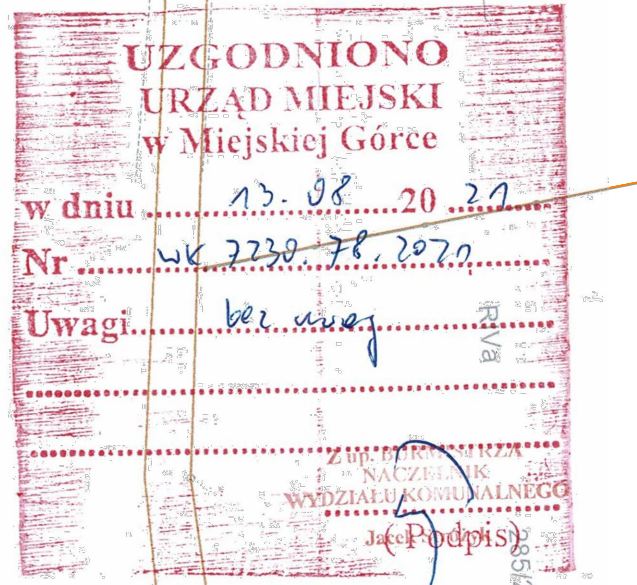 UZGODNIONO
URZĄD MIEJSKI
w Miejskiej Górce
w dniu 13.08 20 21
Nr WK 7230.78.2021
Uwagi bez uwag
RVa
Z up. BURMISTRZA
NACZELNIK
WYDZIAŁU KOMUNALNEGO
Jacek
(Podpis)
285/